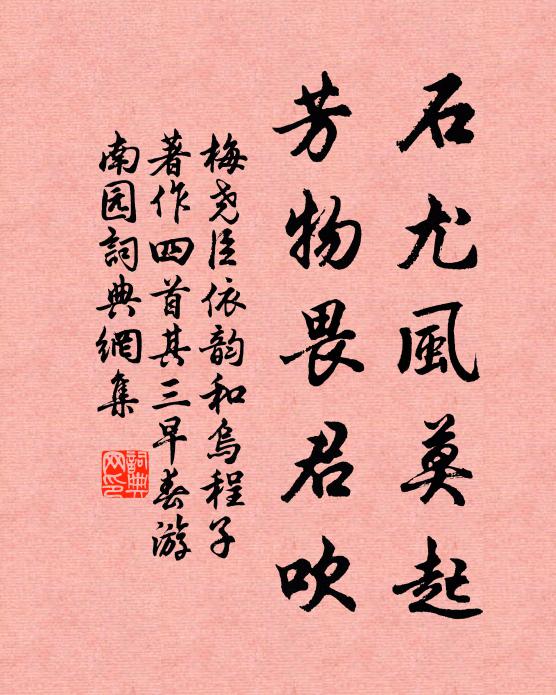 石尤風莫起
芳物畏君吹
梅尧臣依韵和烏程子
著作四首其三早春游
南园詞典網集
詞典网印